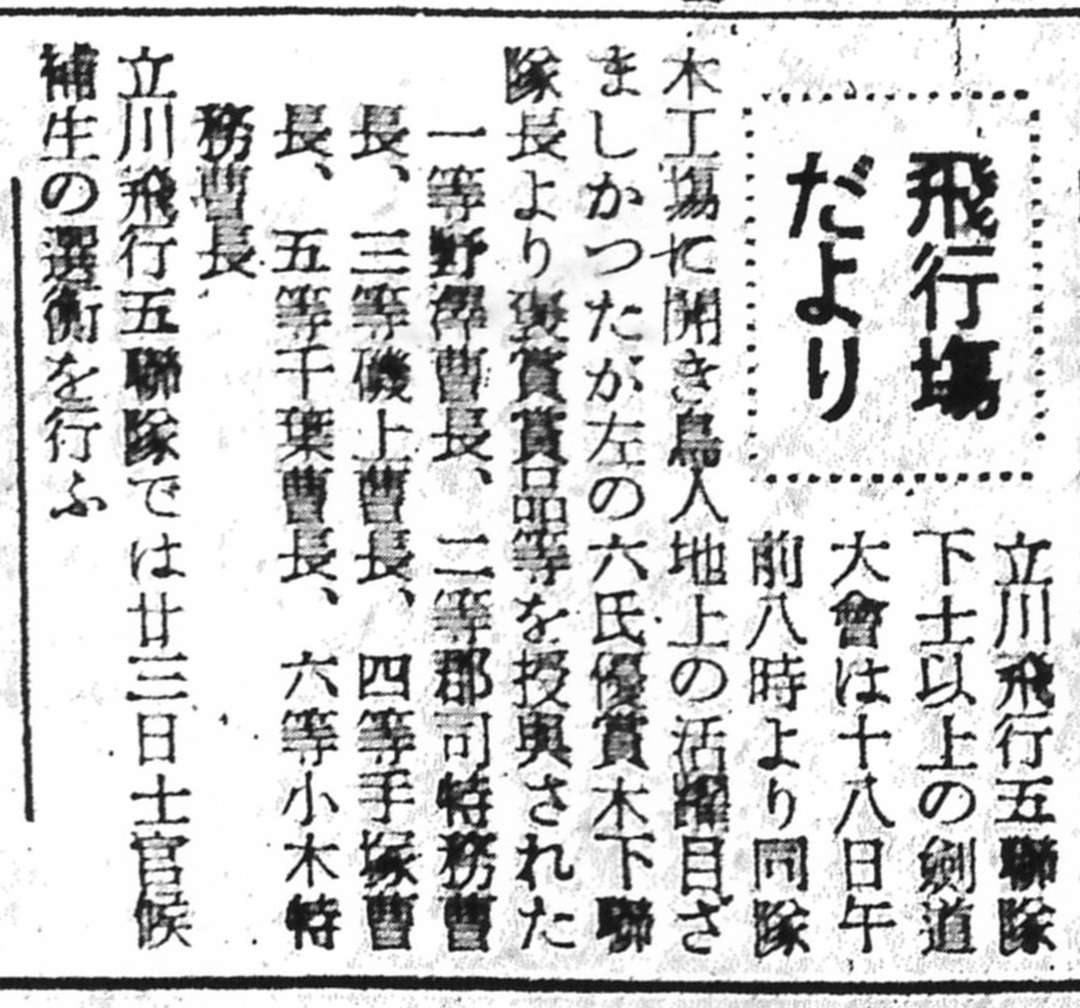 飛行場
だより
立川飛行五聯隊
下士以上の劍道
大會は十八日午
前八時より同隊
木工場に開き鳥人地上の活躍目ざ
ましかつたが左の六氏優賞木下聯
隊長より褒賞賞品等を授與された
一等野澤曹長、二等郡司特務曹
長、三等磯上曹長、四等手塚曹
長、五等千葉曹長、六等小木特
務曹長
立川飛行五聯隊では廿三日士官候
補生の選衡を行ふ